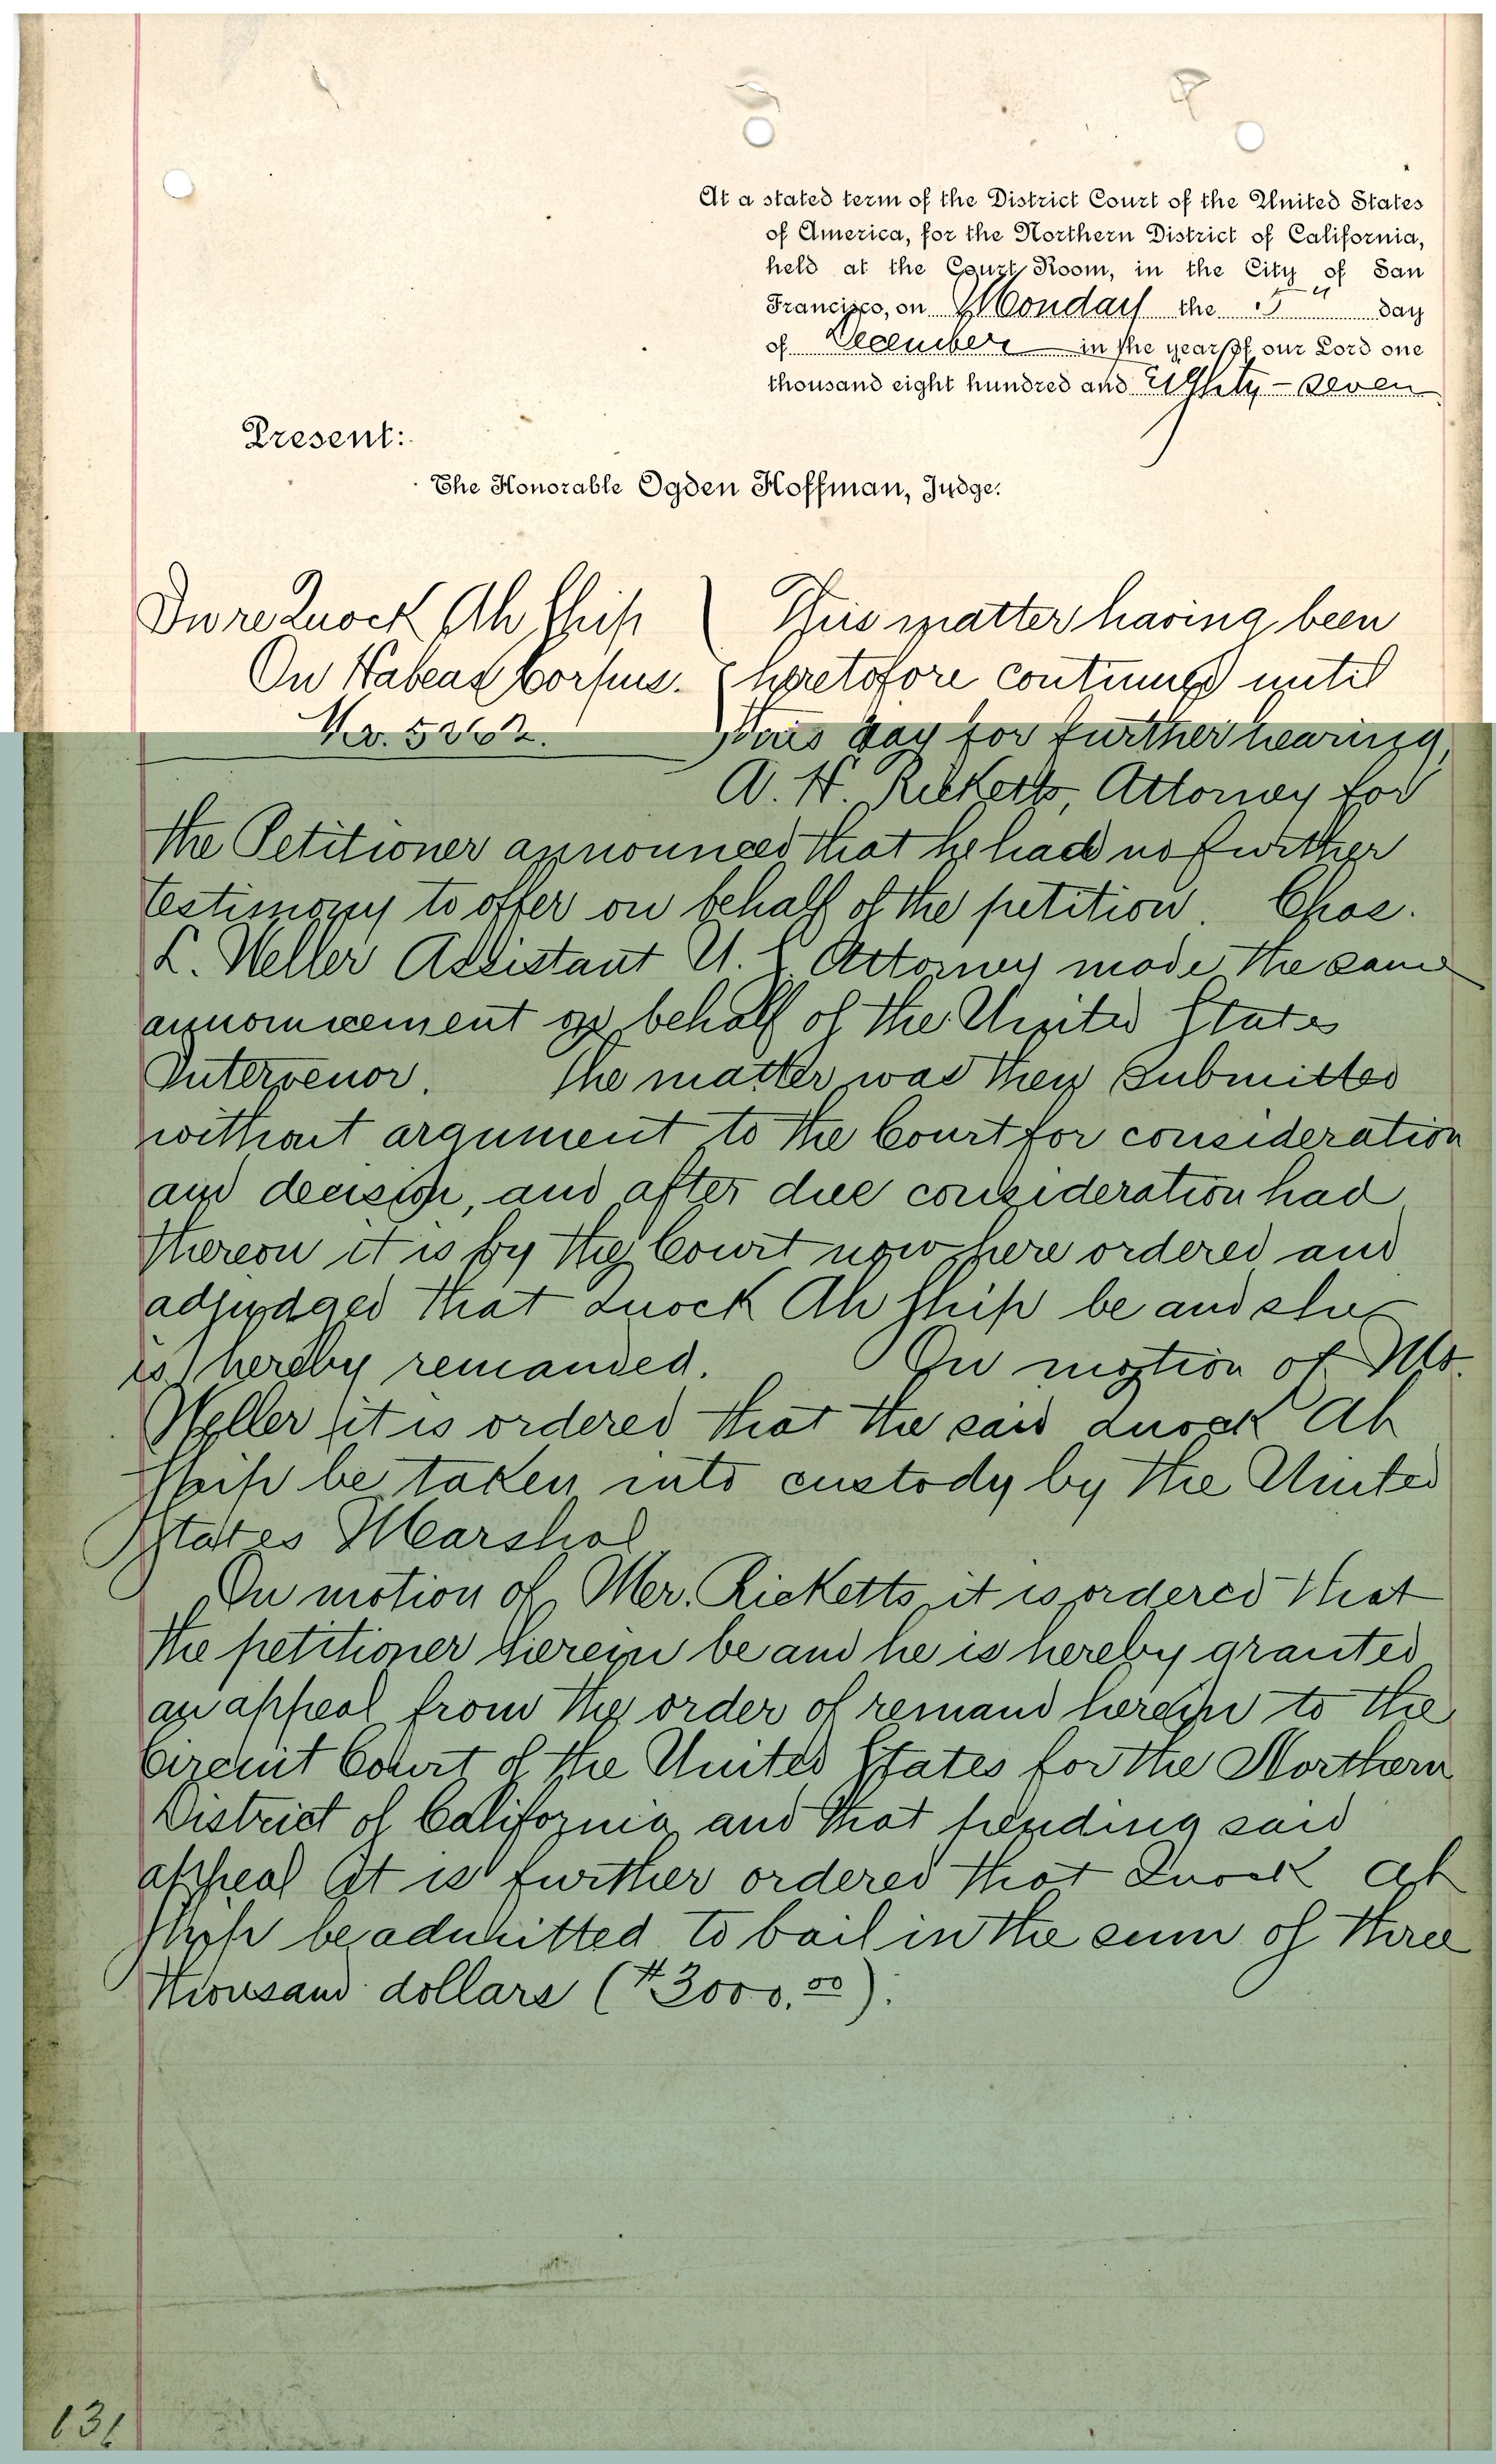 At a stated term of the District Court of the United States
of America, for the Northern District of California,
held at the Court Room, in the City of San
Francisco, on Monday the 5" day
of December in the year of our Lord one
thousand eight hundred and Eighty-seven
Present:
The Honorable Ogden Hoffman, Judge.
In re Quock Ah Ship
On Habeas Corpus.
No. 5262.
This matter having been
heretofore continued until
this day for further hearing,
A. H. Ricketts, Attorney for
the Petitioner announced that he had no further
testimony to offer on behalf of the petition. Chas.
L. Weller Assistant U. S. Attorney made the same
announcement on behalf of the United States
Intervenor. The matter was then submitted
without argument to the Court for consideration
and decision, and after due consideration had
thereon it is by the Court now here ordered and
adjudged that Quock Ah Ship be and she
is hereby remanded. On motion of Mr.
Weller it is ordered that the said Quock Ah
Ship be taken into custody by the United
States Marshal
On motion of Mr. Ricketts it is ordered that
the petitioner herein be and he is hereby granted
an appeal from the order of remand herein to the
Circuit Court of the United States for the Northern
District of California and that pending said
appeal it is further ordered that Quock Ah
Ship be admitted to bail in the sum of three
thousand dollars ($3000.00).